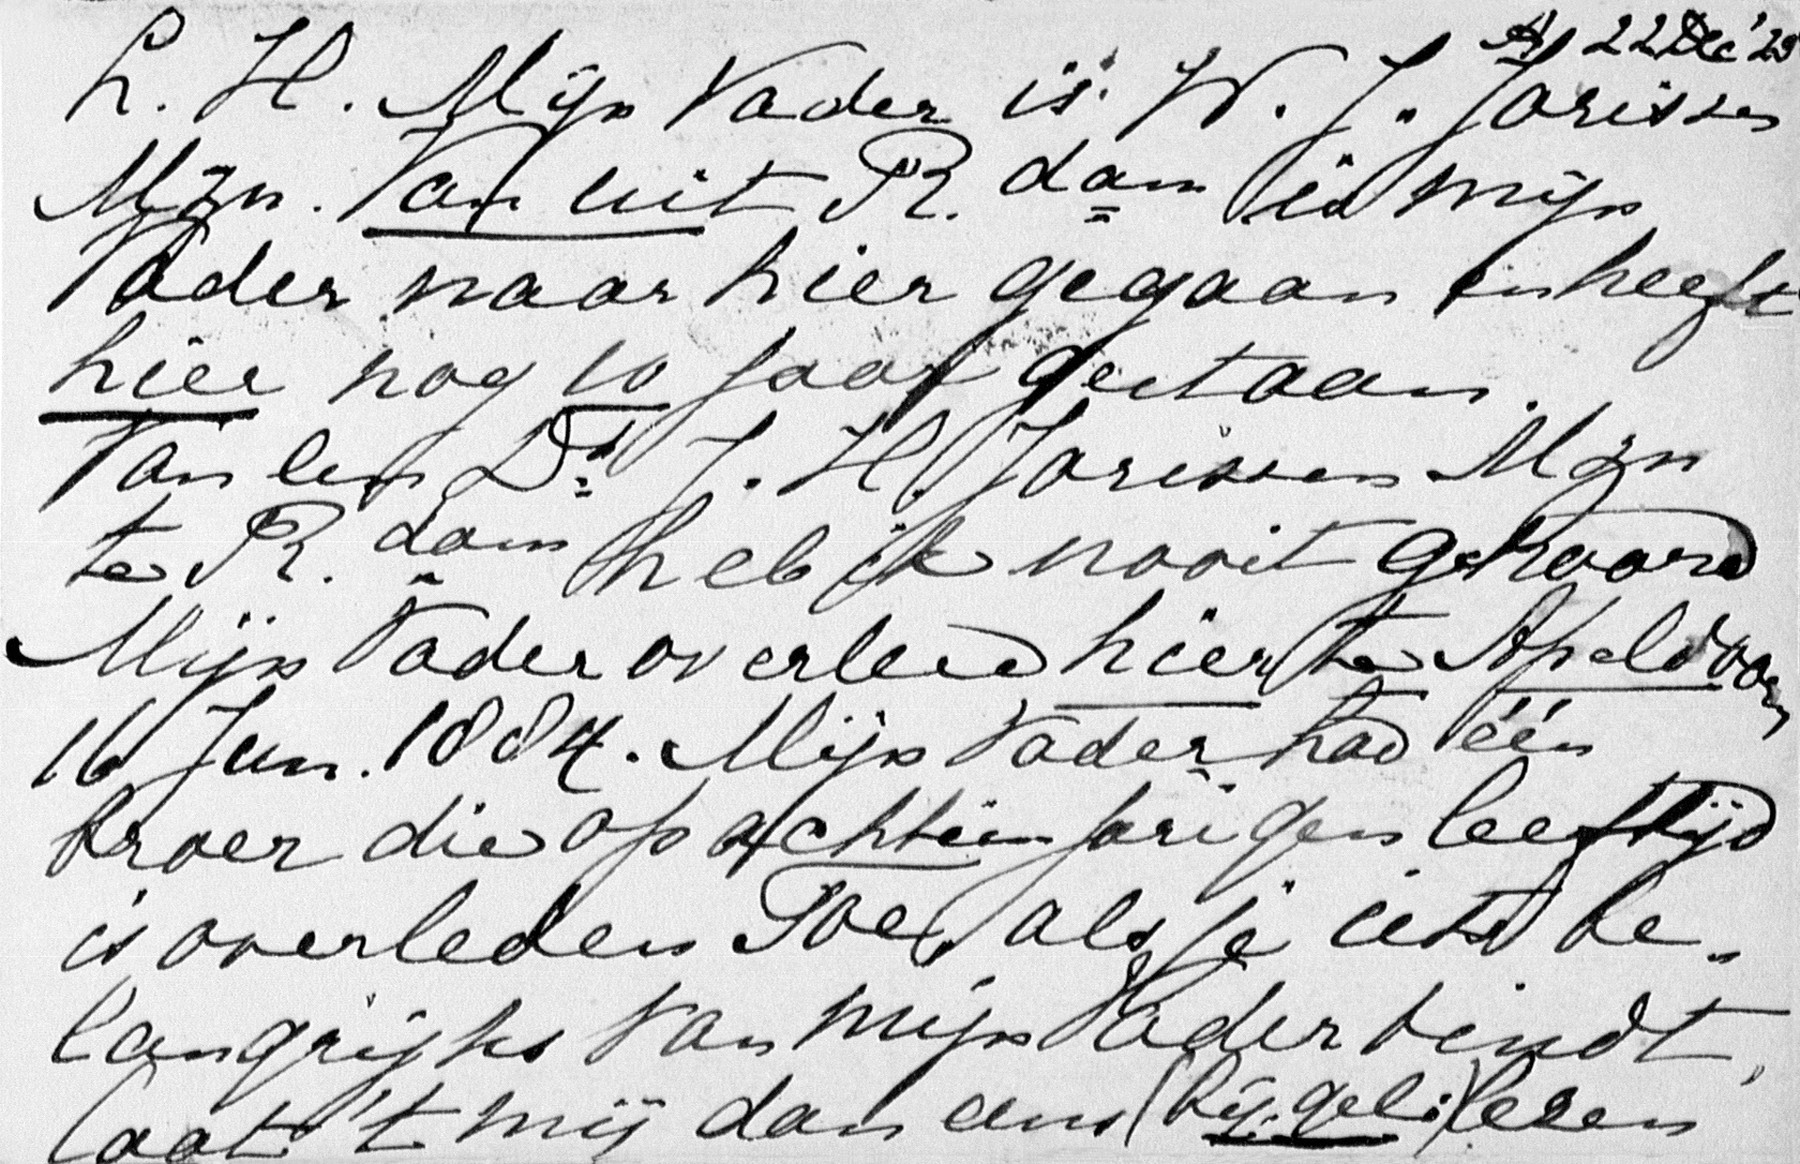 A, 22 Dec '23
L. H. Mijn Vader is W. J. Jorissen
Mzn. Van uit R.dam is mijn
Vader naar hier gegaan en heeft
hier nog 10 jaar gestaan.
Van een Ds J. H. Jorissen Mzn
te R.dam heb ik nooit gehoord
Mijn Vader overleed hier te Apeldoorn
16 Jun. 1884. Mijn Vader had één
broer die op achttienjarigen leeftijd
is overleden Toe, als je iets be-
langrijks van mijn Vader vindt,
laat 't mij dan eens (bij gel.) lezen